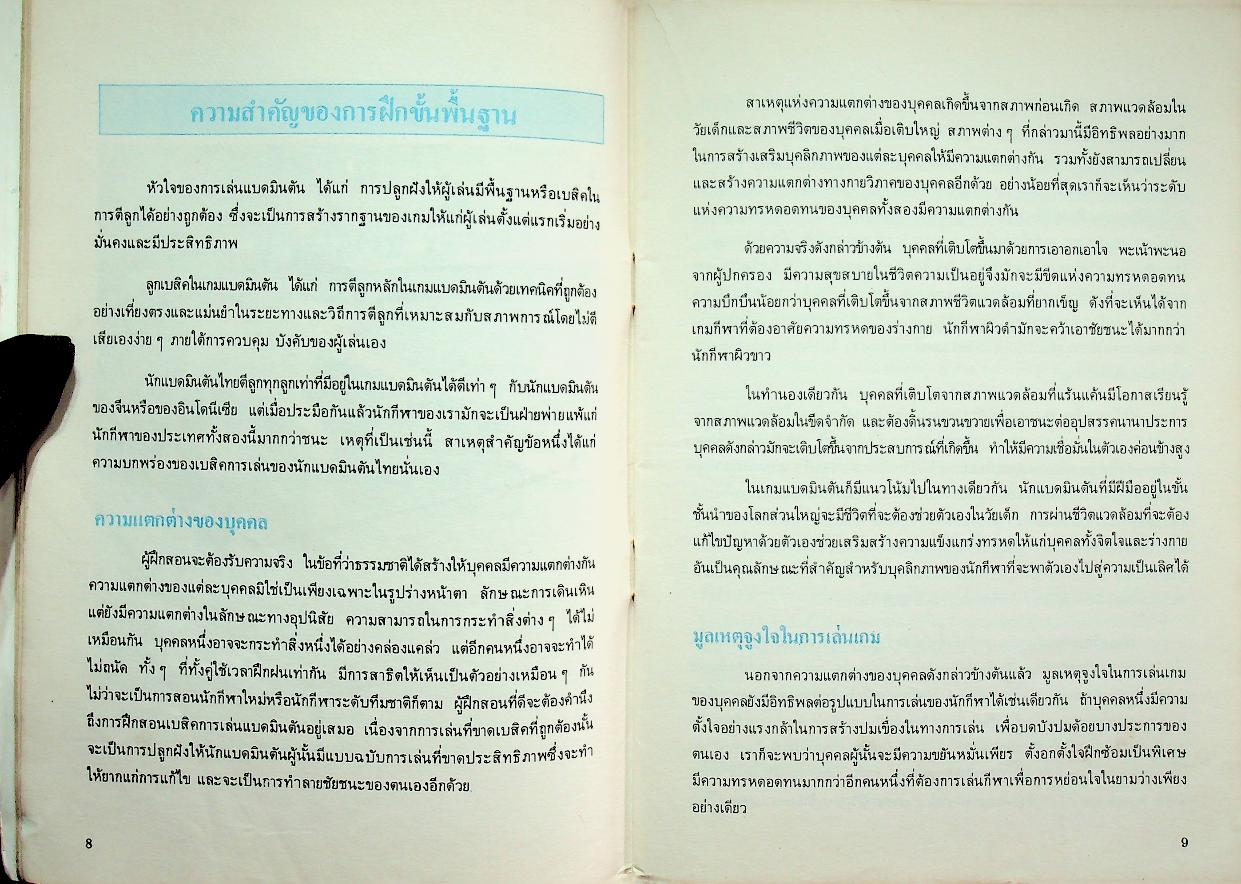 ความสำคัญของการฝึกขั้นพื้นฐาน
หัวใจของการเล่นแบดมินตัน ได้แก่ การปลูกฝังให้ผู้เล่นมีพื้นฐานหรือเบสิคใน
การตีลูกได้อย่างถูกต้อง ซึ่งจะเป็นการสร้างรากฐานของเกมให้แก่ผู้เล่นตั้งแต่แรกเริ่มอย่าง
มั่นคงและมีประสิทธิภาพ
ลูกเบสิคในเกมแบดมินตัน ได้แก่ การตีลูกหลักในเกมแบดมินตันด้วยเทคนิคที่ถูกต้อง
อย่างเที่ยงตรงและแม่นยำในระยะทางและวิถีการตีลูกที่เหมาะสมกับสภาพการณ์โดยไม่ตี
เสียเองง่าย ๆ ภายใต้การควบคุม บังคับของผู้เล่นเอง
นักแบดมินตันไทยตีลูกทุกลูกเท่าที่มีอยู่ในเกมแบดมินตันได้ดีเท่า ๆ กับนักแบดมินตัน
ของจีนหรือของอินโดนีเซีย แต่เมื่อประมือกันแล้วนักกีฬาของเรามักจะเป็นฝ่ายพ่ายแพ้แก่
นักกีฬาของประเทศทั้งสองนี้มากกว่าชนะ เหตุที่เป็นเช่นนี้ สาเหตุสำคัญข้อหนึ่งได้แก่
ความบกพร่องของเบสิคการเล่นของนักแบดมินตันไทยนั่นเอง
ความแตกต่างของบุคคล
ผู้ฝึกสอนจะต้องรับความจริง ในข้อที่ว่าธรรมชาติได้สร้างให้บุคคลมีความแตกต่างกัน
ความแตกต่างของแต่ละบุคคลมิใช่เป็นเพียงเฉพาะในรูปร่างหน้าตา ลักษณะการเดินเหิน
แต่ยังมีความแตกต่างในลักษณะทางอุปนิสัย ความสามารถในการกระทำสิ่งต่าง ๆ ได้ไม่
เหมือนกัน บุคคลหนึ่งอาจจะกระทำสิ่งหนึ่งได้อย่างคล่องแคล่ว แต่อีกคนหนึ่งอาจจะทำได้
ไม่ถนัด ทั้ง ๆ ที่ทั้งคู่ใช้เวลาฝึกฝนเท่ากัน มีการสาธิตให้เห็นเป็นตัวอย่างเหมือน ๆ กัน
ไม่ว่าจะเป็นการสอนนักกีฬาใหม่หรือนักกีฬาระดับทีมชาติก็ตาม ผู้ฝึกสอนที่ดีจะต้องคำนึง
ถึงการฝึกสอนเบสิคการเล่นแบดมินตันอยู่เสมอ เนื่องจากการเล่นที่ขาดเบสิคที่ถูกต้องนั้น
จะเป็นการปลูกฝังให้นักแบดมินตันผู้นั้นมีแบบฉบับการเล่นที่ขาดประสิทธิภาพซึ่งจะทำ
ให้ยากแก่การแก้ไข และจะเป็นการทำลายชัยชนะของตนเองอีกด้วย
8
สาเหตุแห่งความแตกต่างของบุคคลเกิดขึ้นจากสภาพก่อนเกิด สภาพแวดล้อมใน
วัยเด็กและสภาพชีวิตของบุคคลเมื่อเติบใหญ่ สภาพต่าง ๆ ที่กล่าวมานี้มีอิทธิพลอย่างมาก
ในการสร้างเสริมบุคลิกภาพของแต่ละบุคคลให้มีความแตกต่างกัน รวมทั้งยังสามารถเปลี่ยน
และสร้างความแตกต่างทางกายวิภาคของบุคคลอีกด้วย อย่างน้อยที่สุดเราก็จะเห็นว่าระดับ
แห่งความทรหดอดทนของบุคคลทั้งสองมีความแตกต่างกัน
ด้วยความจริงดังกล่าวข้างต้น บุคคลที่เติบโตขึ้นมาด้วยการเอาอกเอาใจ พะเน้าพะนอ
จากผู้ปกครอง มีความสุขสบายในชีวิตความเป็นอยู่จึงมักจะมีขีดแห่งความทรหดอดทน
ความบึกบึนน้อยกว่าบุคคลที่เติบโตขึ้นจากสภาพชีวิตแวดล้อมที่ยากเข็ญ ดังที่จะเห็นได้จาก
เกมกีฬาที่ต้องอาศัยความทรหดของร่างกาย นักกีฬาผิวดำมักจะคว้าเอาชัยชนะได้มากกว่า
นักกีฬาผิวขาว
ในทำนองเดียวกัน บุคคลที่เติบโตจากสภาพแวดล้อมที่แร้นแค้นมีโอกาสเรียนรู้
จากสภาพแวดล้อมในขีดจำกัด และต้องดิ้นรนขวนขวายเพื่อเอาชนะต่ออุปสรรคนานาประการ
บุคคลดังกล่าวมักจะเติบโตขึ้นจากประสบการณ์ที่เกิดขึ้น ทำให้มีความเชื่อมั่นในตัวเองค่อนข้างสูง
ในเกมแบดมินตันก็มีแนวโน้มไปในทางเดียวกัน นักแบดมินตันที่มีฝีมืออยู่ในขั้น
ชั้นนำของโลกส่วนใหญ่จะมีชีวิตที่จะต้องช่วยตัวเองในวัยเด็ก การผ่านชีวิตแวดล้อมที่จะต้อง
แก้ไขปัญหาด้วยตัวเองช่วยเสริมสร้างความแข็งแกร่งทรหดให้แก่บุคคลทั้งจิตใจและร่างกาย
อันเป็นคุณลักษณะที่สำคัญสำหรับบุคลิกภาพของนักกีฬาที่จะพาตัวเองไปสู่ความเป็นเลิศได้
มูลเหตุจูงใจในการเล่นเกม
นอกจากความแตกต่างของบุคคลดังกล่าวข้างต้นแล้ว มูลเหตุจูงใจในการเล่นเกม
ของบุคคลยังมีอิทธิพลต่อรูปแบบในการเล่นของนักกีฬาได้เช่นเดียวกัน ถ้าบุคคลหนึ่งมีความ
ตั้งใจอย่างแรงกล้าในการสร้างปมเขื่องในทางการเล่น เพื่อบดบังปมด้อยบางประการของ
ตนเอง เราก็จะพบว่าบุคคลผู้นั้นจะมีความขยันหมั่นเพียร ตั้งอกตั้งใจฝึกซ้อมเป็นพิเศษ
มีความทรหดอดทนมากกว่าอีกคนหนึ่งที่ต้องการเล่นกีฬาเพื่อการหย่อนใจในยามว่างเพียง
อย่างเดียว
9